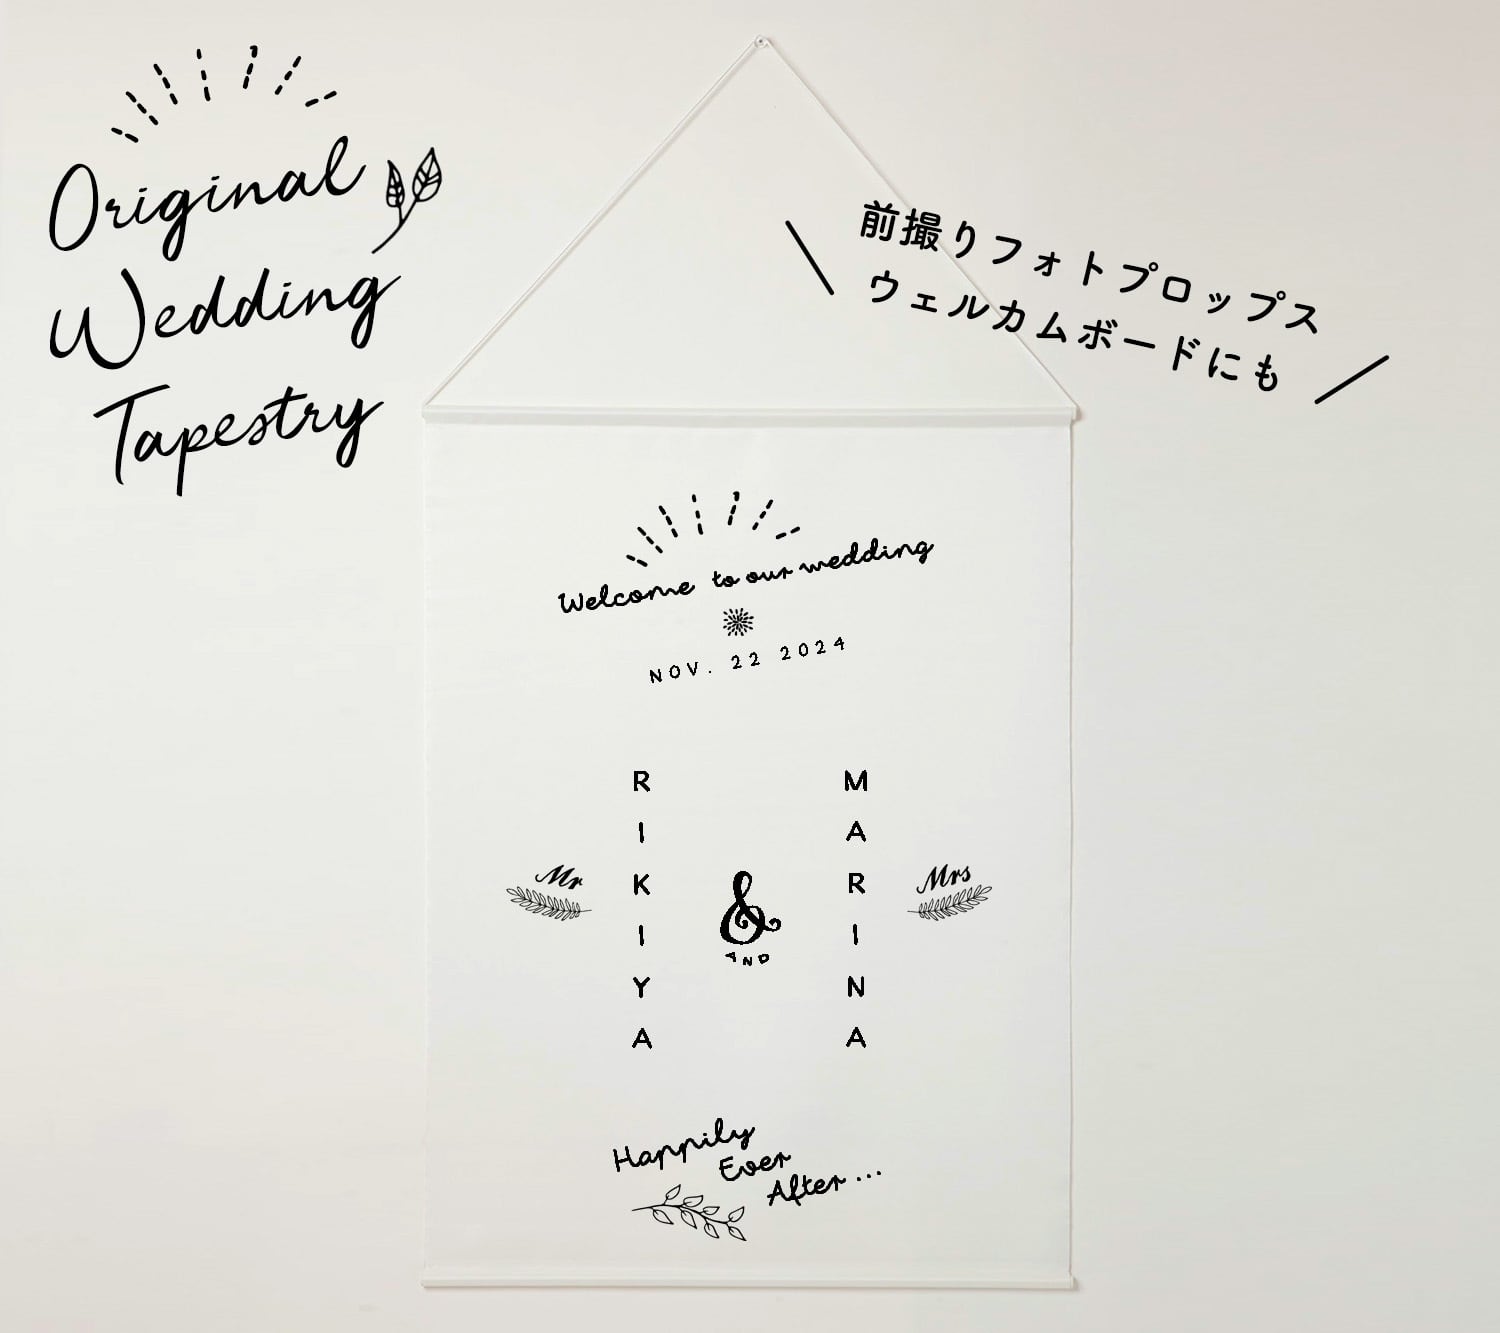 Original
Wedding
Tapestry
前撮りフォトプロップス
ウェルカムボードにも
Welcome to our wedding
NOV. 22 2024
RIKIYA
Mr
&
AND
MARINA
Mrs
Happily
Ever
After...